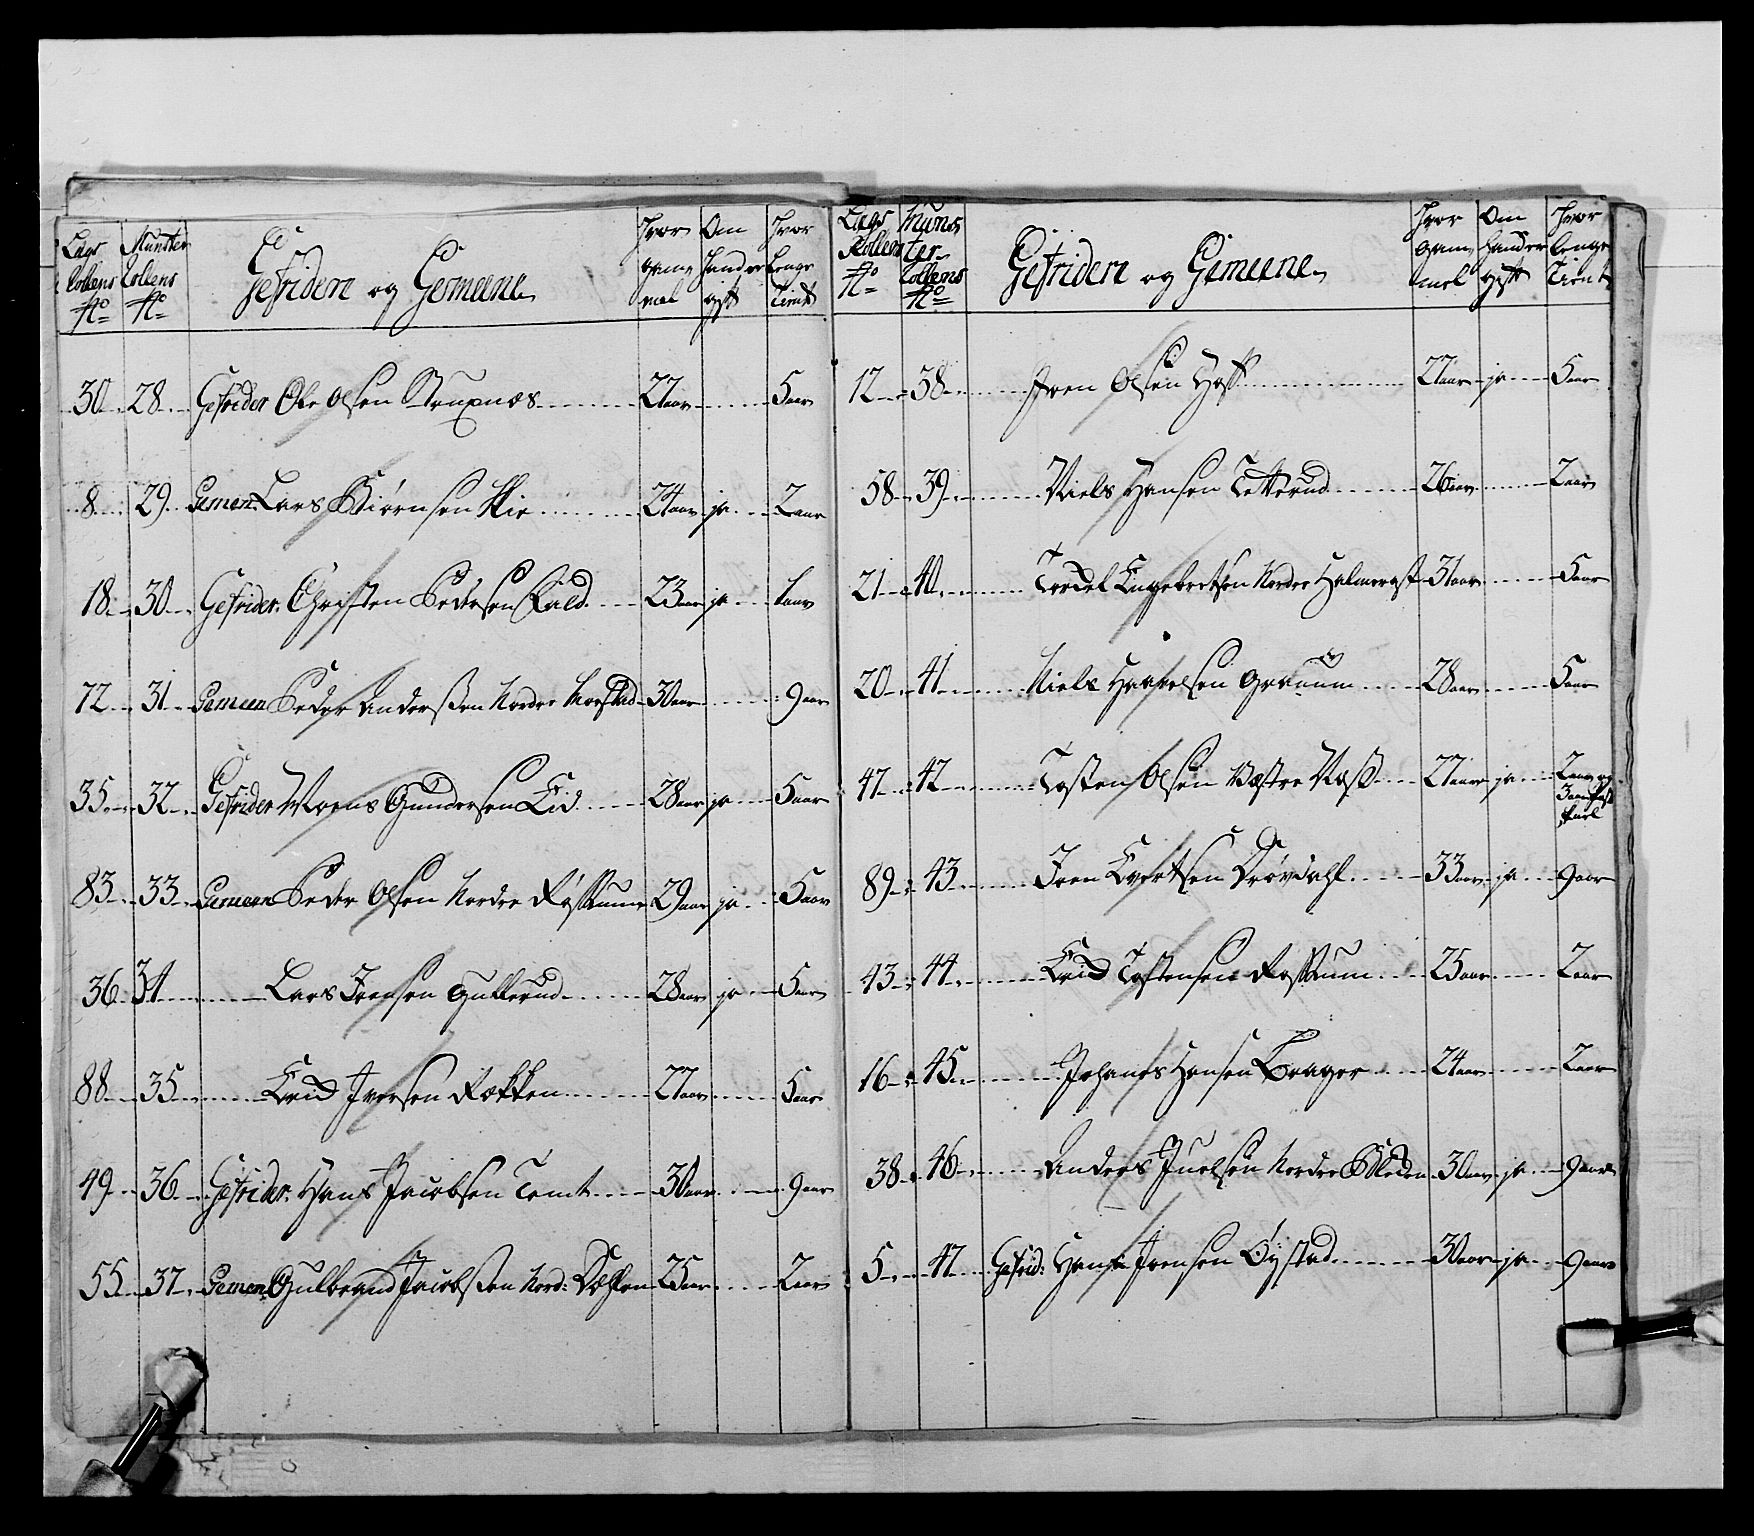 Lægs Rollens No
Münster Rollens No
Gefridere og Gemeene
Hvor gammel
Om Hand er gift
Hvor lenge Tient
30 28 Gefrider Ole Olsen 27 aar 5 aar
8 29 Gemen Lars Biørnsen Lie 24 aar ja 2 aar
18 30 Gefrider Christen Pedersen Fald 23 aar ja 1 aar
72 31 Gemeen Peder Anderssen Nordre 30 aar 9 aar
35 32 Gefrider Moens Gundersen Lid 28 aar ja 5 aar
83 33 Gemeen Peder Olsen Nordre Røstum 29 aar ja 5 aar
36 34 Lars Joensen Gullerud 28 aar ja 5 aar
88 35 Erid Iversen Røkken 27 aar 5 aar
49 36 Gefrider Hans Jacobsen Tomt 30 aar 9 aar
55 37 Gemen Gulbrand Jacobssen Nord: 25 aar 2 aar
Lægs Rollens No
Münster Rollens No
Gefridere og Gemeene
Hvor gammel
Om Hand er gift
Hvor lenge Tient
12 38 Joen Olsen Hoff 27 aar ja 5 aar
58 39 Niels Hansen Tetterud 26 aar 2 aar
21 40 Engebretsen Nordre 31 aar 5 aar
20 41 Niels 28 aar 5 aar
47 42 Tosten Olsen Vestre 27 aar ja 2 aar og
3 aar
89 43 Joen Evertsen 33 aar ja 9 aar
43 44 Erid Tostensen Røstum 25 aar 2 aar
16 45 Johanes Hansen Brager 24 aar 2 aar
38 46 Anders Juelsen Nordre 30 aar ja 9 aar
5 47 Gefrid: Hans Joensen Øystad 30 aar ja 9 aar